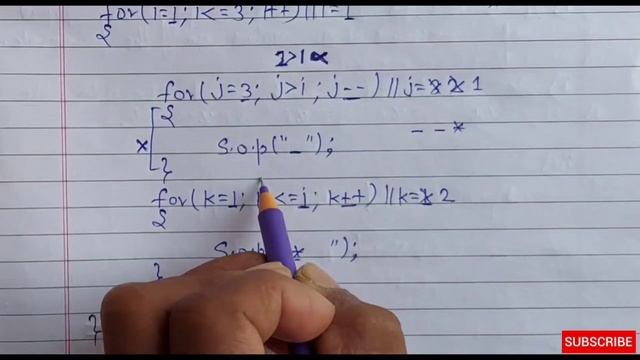 for(i=1; i<=3; i++) // i=1
{
1>1×
for(j=3; j>i; j--) // j=3 2 1
{
S.o.p("_");
- - *
×
}
for(k=1; <=i; k++) // k=1 2
{
S.o.p * ");
}
}
SUBSCRIBE